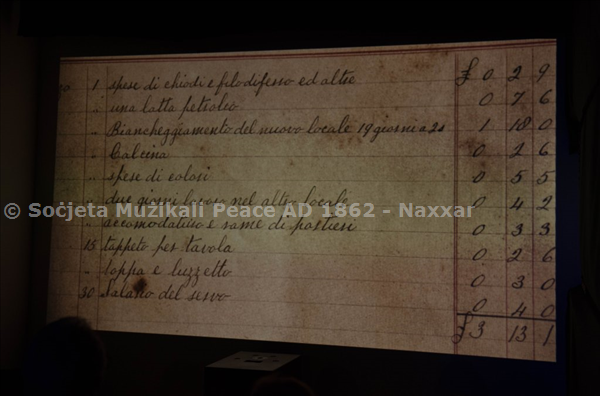 10 1 spese di chiodi e filo di ferro ed altre £ 0 2 9
" una latta petrolio 0 7 6
" Biancheggiamento del nuovo locale 19 giorni a 2s 1 18 0
" Calcina 0 2 6
" spese di colori 0 5 5
" due giorni lavoro nel altro locale 0 4 2
© Soċjeta Mużikali Peace AD 1862 - Naxxar
" e rame di 0 3 3
15 tappeto per tavola 0 2 6
" toppa e luzzetto 0 3 0
30 Salario del servo 0 4 0
£ 3 13 1